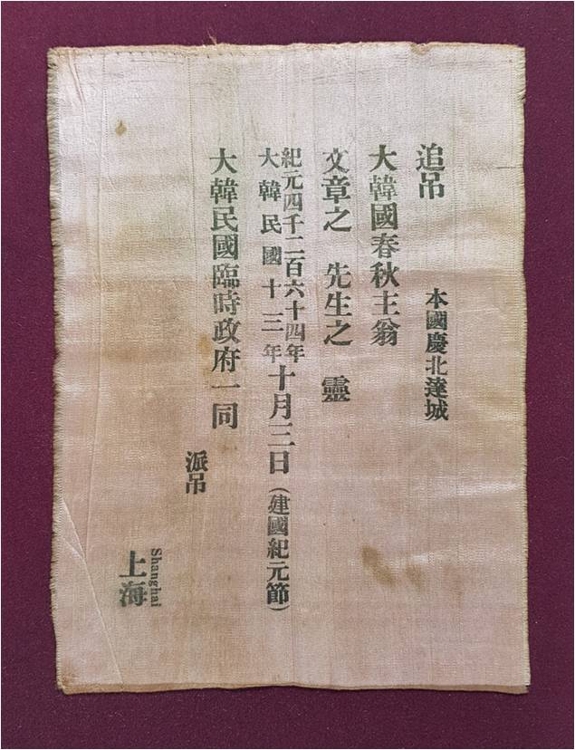 追吊 本國慶北達城
大韓國春秋主翁
文章之 先生之 靈
紀元四千二百六十四年
大韓民國十三年
十月三日(建國紀元節)
大韓民國臨時政府一同
派吊
Shanghai
上海